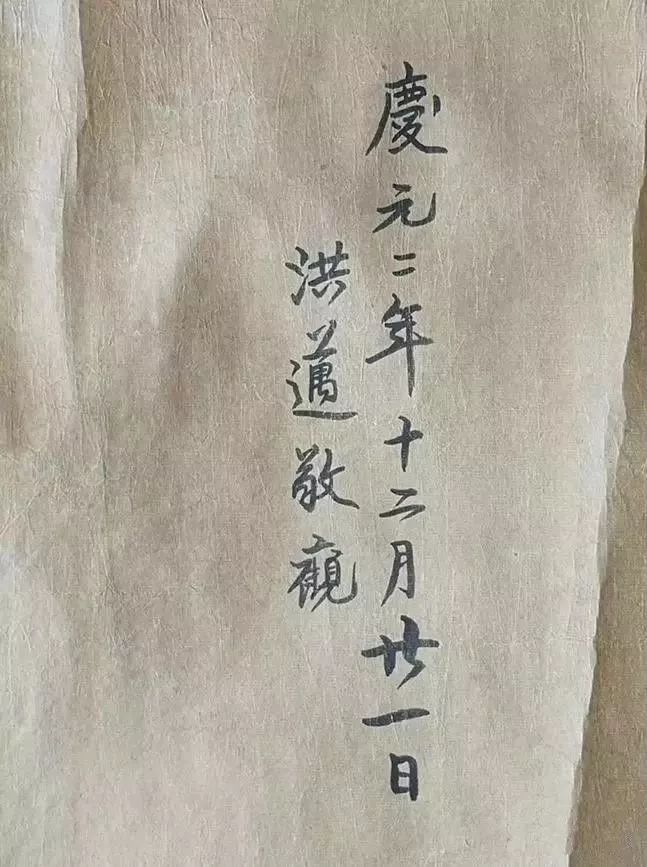 慶元二年十二月廿一日
洪邁敬觀